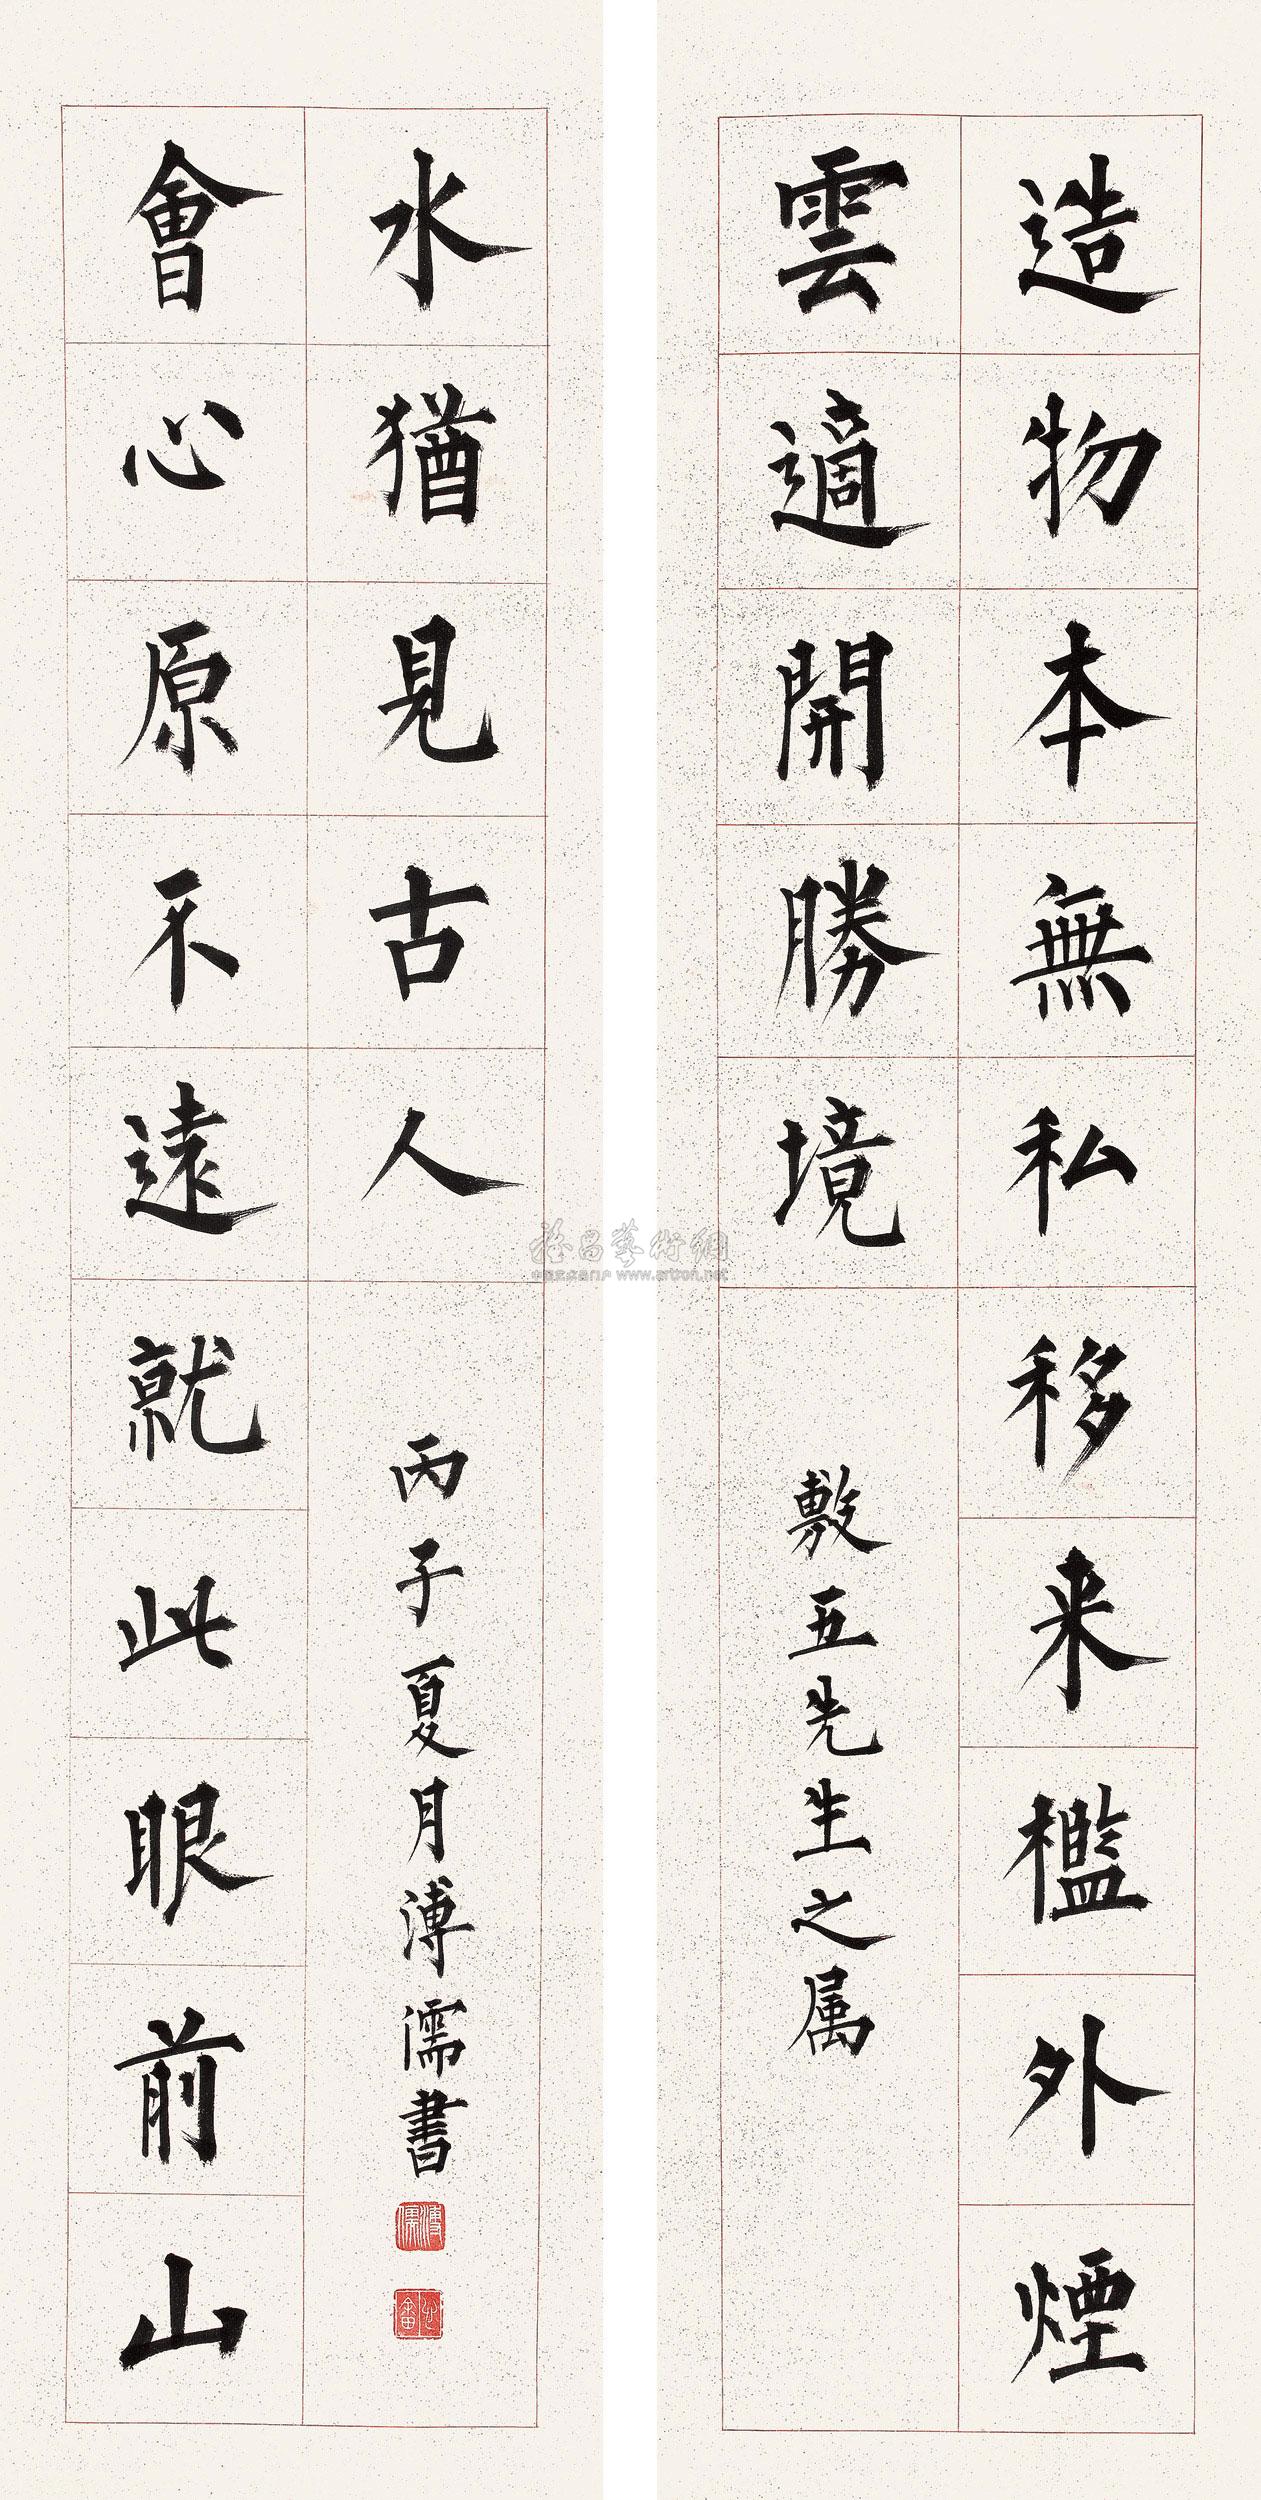 造物本無私移来檻外煙
雲適開勝境
敷五先生之属
會心原不遠就此眼前山
水猶見古人
丙子夏月溥儒書
溥儒
心畬
雅昌藝術網
www.artron.net